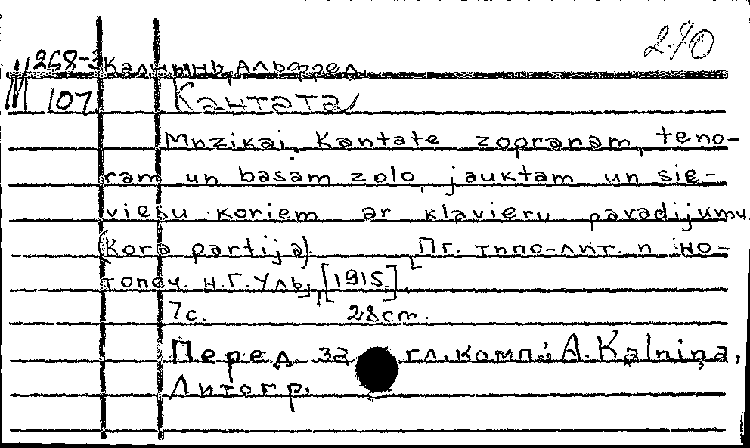 2.90
М 268-3 Калнынь, Альфред.
107 Кантата
Mūzikai. Kantate zopranam, teno-
ram un basam zolo, jauktam un sie-
viešu koriem ar klavieru pavadijumu
(Kora partija) [Пг. типо-лит. и но-
топеч. Н.Г. Уль, [1915].
7 с. 28 cm.
Перед загл. комп.: A. Kalniņa.
Литогр.